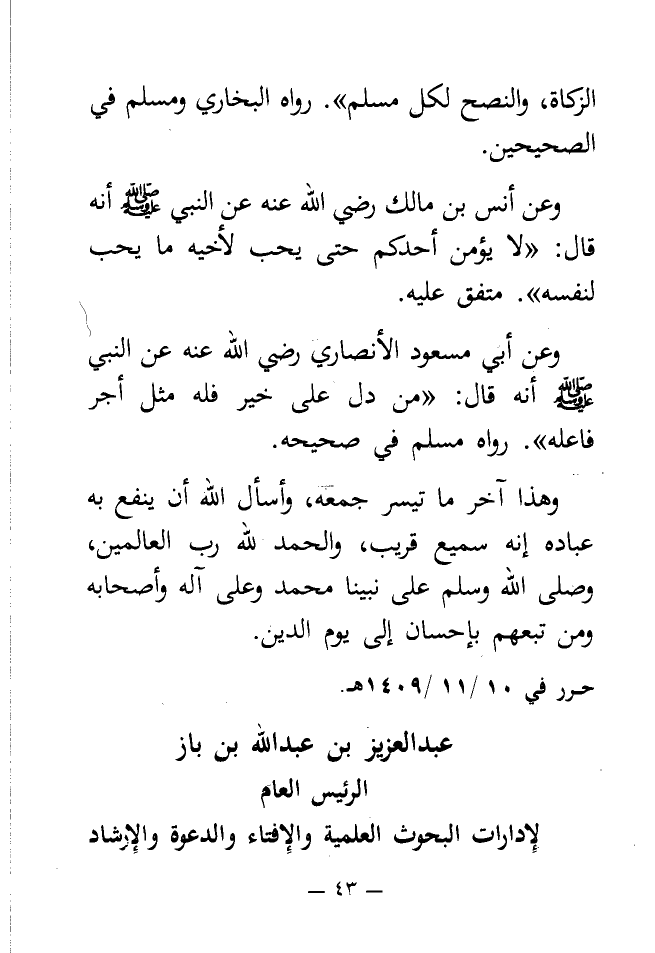 الزكاة، والنصح لكل مسلم». رواه البخاري ومسلم في
الصحيحين.
وعن أنس بن مالك رضي الله عنه عن النبي ﷺ أنه
قال: «لا يؤمن أحدكم حتى يحب لأخيه ما يحب
لنفسه». متفق عليه.
وعن أبي مسعود الأنصاري رضي الله عنه عن النبي
ﷺ أنه قال: «من دل على خير فله مثل أجر
فاعله». رواه مسلم في صحيحه.
وهذا آخر ما تيسر جمعه، وأسأل الله أن ينفع به
عباده إنه سميع قريب، والحمد لله رب العالمين،
وصلى الله وسلم على نبينا محمد وعلى آله وأصحابه
ومن تبعهم بإحسان إلى يوم الدين.
حرر في ١٠/ ١١/ ١٤٠٩هـ.
عبدالعزيز بن عبدالله بن باز
الرئيس العام
لإدارات البحوث العلمية والإفتاء والدعوة والإرشاد
— ٤٣ —